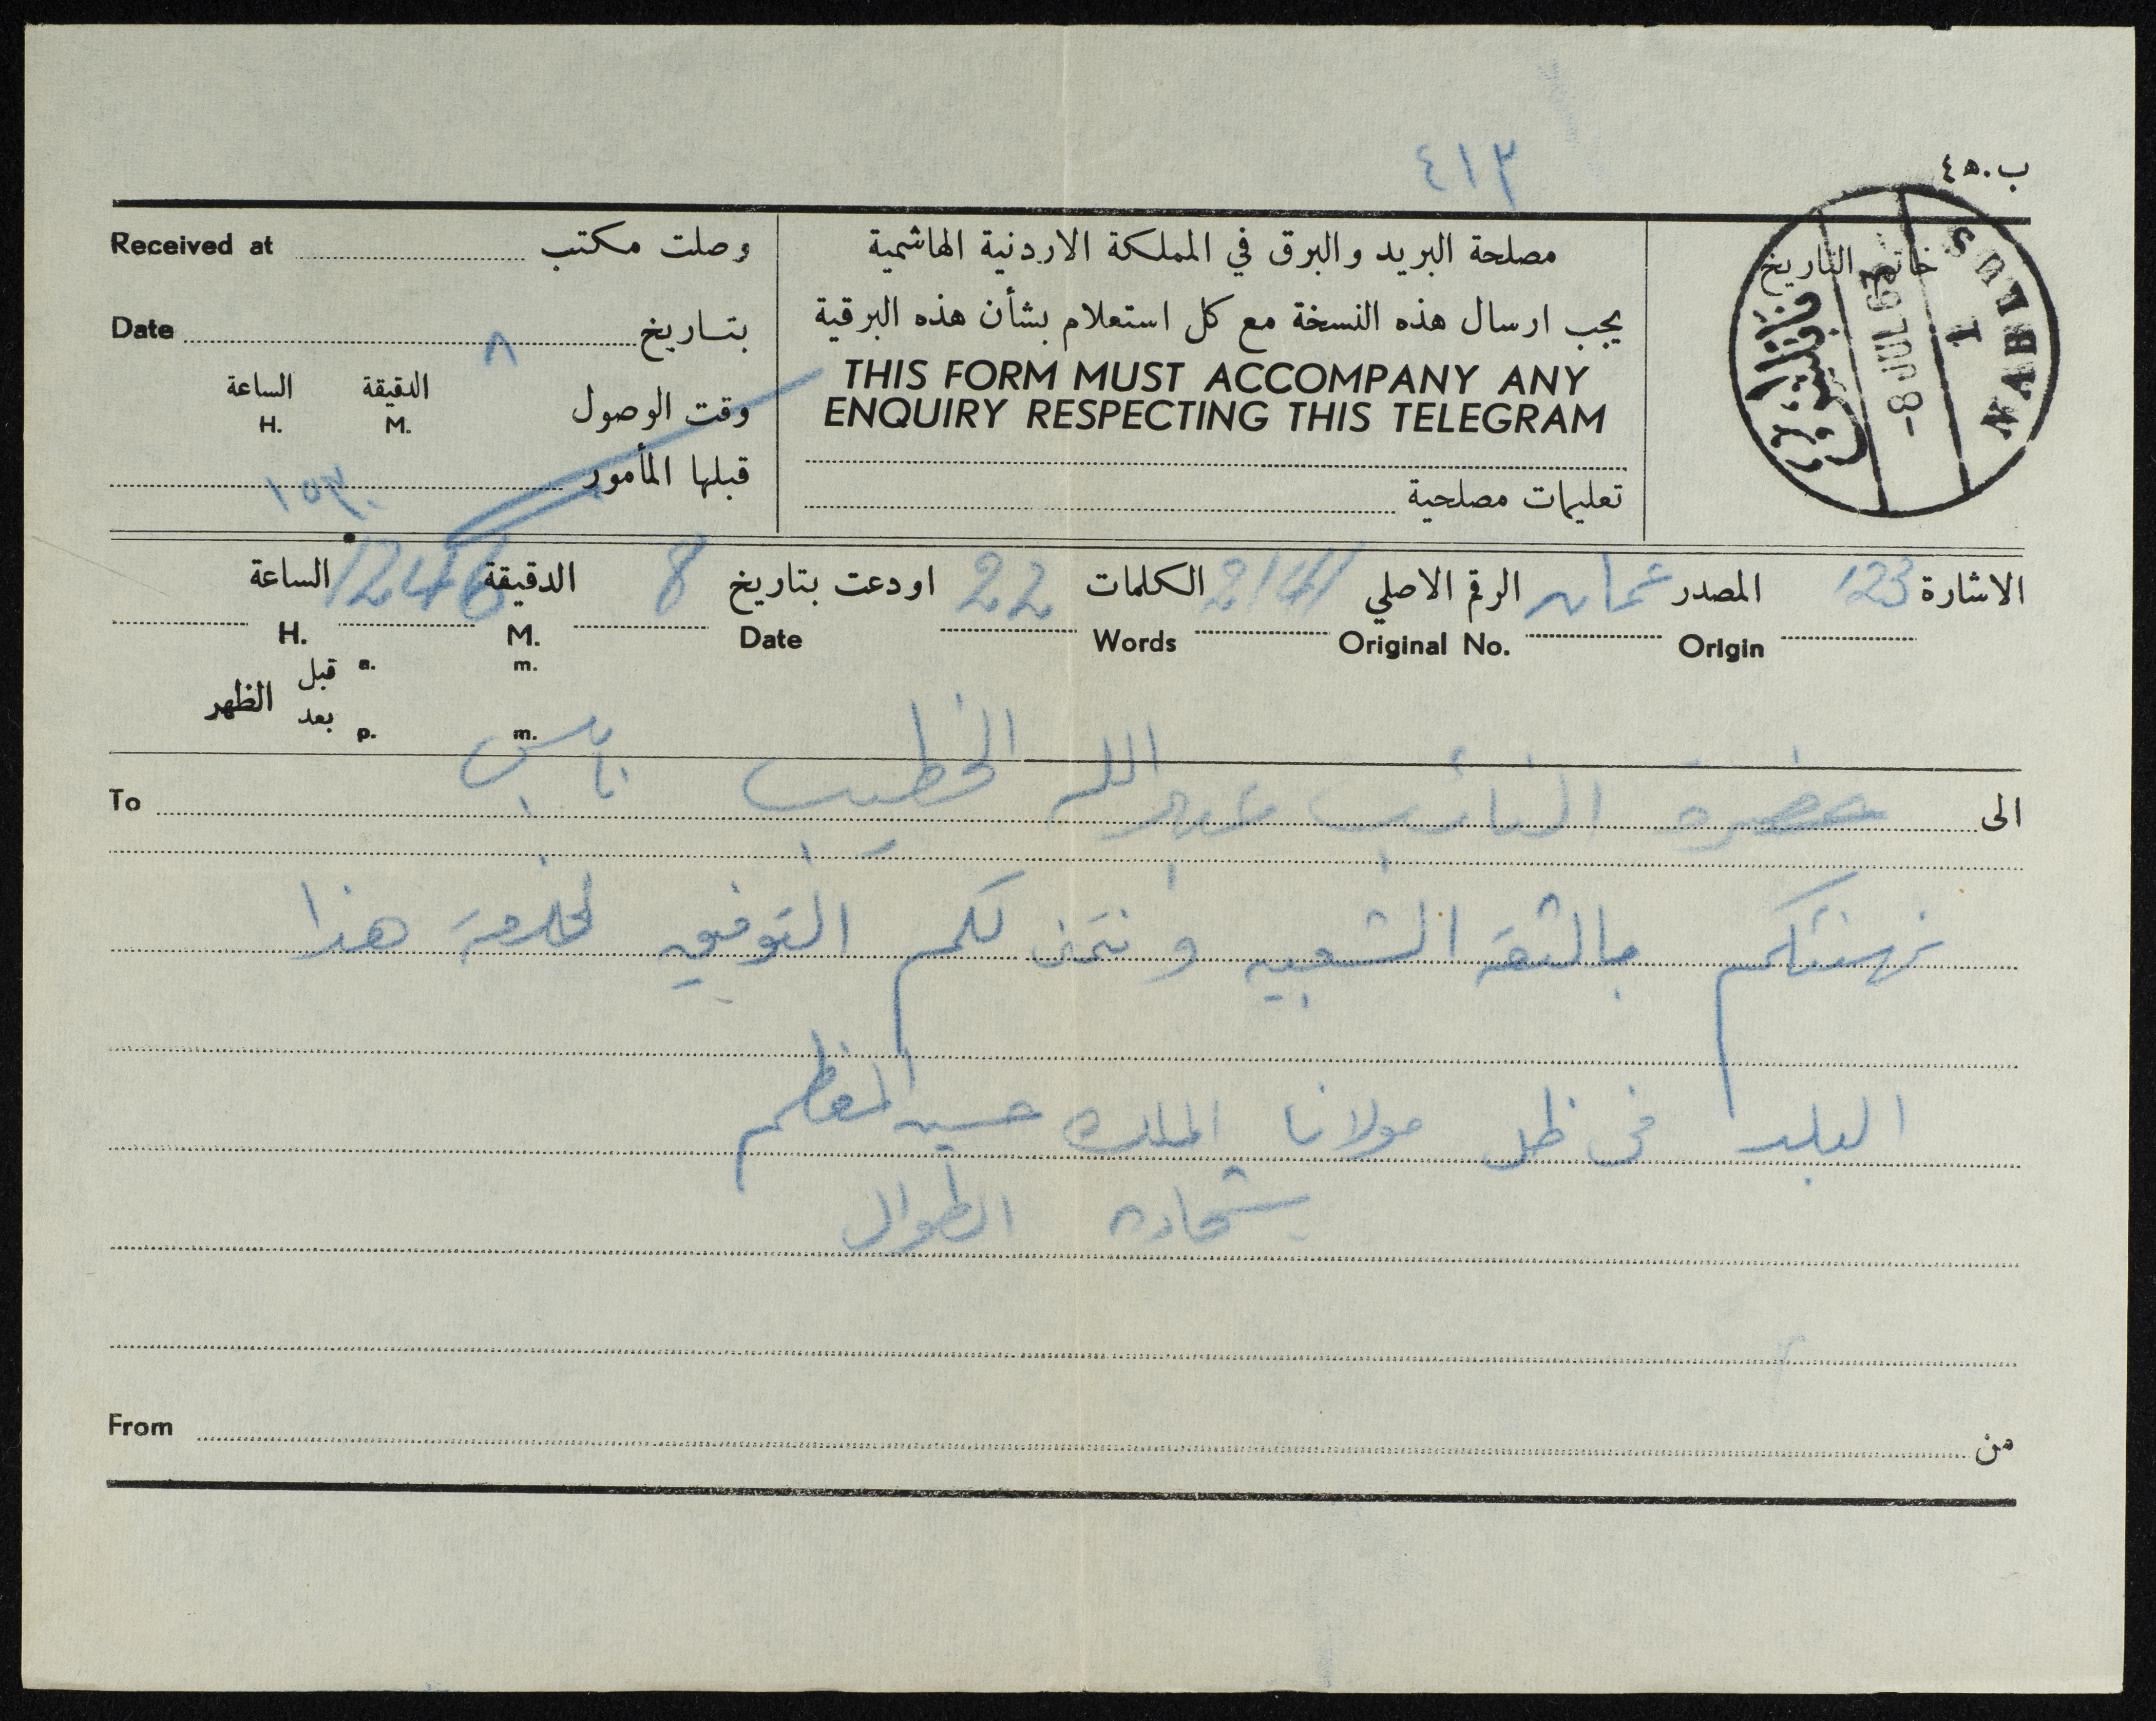 ٤١٣
ب.٤٥
Received at وصلت مكتب
Date بتاريخ ٨
الساعة الدقيقة وقت الوصول
H. M.
قبلها المأمور ١٥٣٠
مصلحة البريد والبرق في المملكة الاردنية الهاشمية
يجب ارسال هذه النسخة مع كل استعلام بشأن هذه البرقية
THIS FORM MUST ACCOMPANY ANY
ENQUIRY RESPECTING THIS TELEGRAM
تعليمات مصلحية
خاتم التاريخ
NABLUS
1
-8 JUL 67
نابلس
الاشارة 123 المصدر عمان الرقم الاصلي 2141 الكلمات 22 اودعت بتاريخ 8 الدقيقة 1246 الساعة
Origin Original No. Words Date M. H.
قبل a. m.
الظهر
بعد p. m.
الى حضرة النائب عبد الله الخطيب نابلس To
نهنئكم بالثقة الشعبيه و نتمنى لكم التوفيق لخدمة هذا
البلد في ظل مولانا الملك حسين المعظم
شحاده الطوال
From من